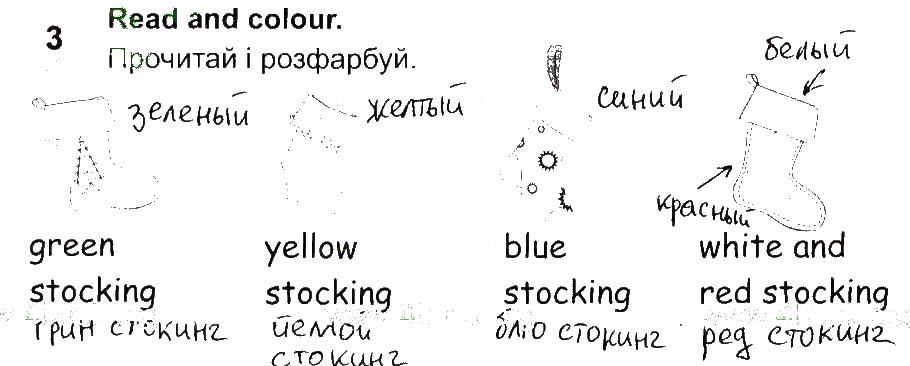 3 Read and colour.
Прочитай і розфарбуй.
зеленый желтый синий белый
красный
green yellow blue white and
stocking stocking stocking red stocking
грин стокинг йелоой стокинг блю стокинг ред стокинг